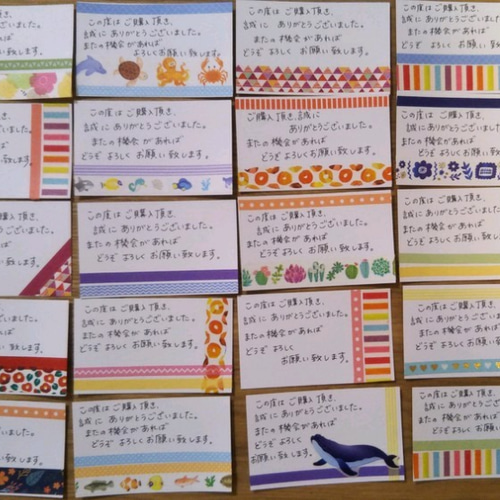 ございました。
あれば
お願い致します。
この度は ご購入頂き、
誠に ありがとうございました。
またの機会があれば
よろしくお願い致します。
この度は ご購入頂き、
誠に ありがとうございました。
またの機会があれば
どうぞ よろしく お願い致します。
この度は ご購入頂き、
誠に ありがとうございました。
またの機会があれば
どうぞ よろしく お願い致します。
この度は ご購入頂き、
誠に ありがとうございました。
またの機会があれば
どうぞ よろしく お願い致します。
ご購入頂き、誠に
ありがとうございました。
またの機会があれば
どうぞ よろしく お願い致します。
この度は ご購入頂き、
誠に ありがとうございました。
またの機会があれば
どうぞ よろしく お願い致します。
この度は ご購入頂き、
誠に ありがとうございました。
またの機会が あれば
どうぞ よろしく お願い致します。
この度は ご購入頂き、
誠に ありがとうございました。
またの機会があれば
どうぞ よろしく お願い致します。
この度は ご購入頂き、
誠に ありがとうございました。
またの機会があれば
どうぞ よろしく お願い致します。
この度は ご購入頂き、
誠に ありがとうございました。
またの機会が あれば
どうぞ よろしく お願い致します。
この度は ご購入頂き、
誠に ありがとうございました。
またの機会が あれば
どうぞ よろしく
お願い致します。
この度は ご購入頂き、
誠に ありがとうございました。
またの機会があれば
どうぞ よろしく お願い致します。
この度は ご購入頂き、
誠に ありがとうございました。
またの機会があれば
どうぞ よろしく お願い致します。
この度は ご購入頂き、
誠に ありがとうございました。
またの機会があれば
どうぞ よろしく
お願い致します。
この度は ご購入頂き、
誠に ありがとうございました。
またの機会があれば
どうぞ よろしく お願い致します。